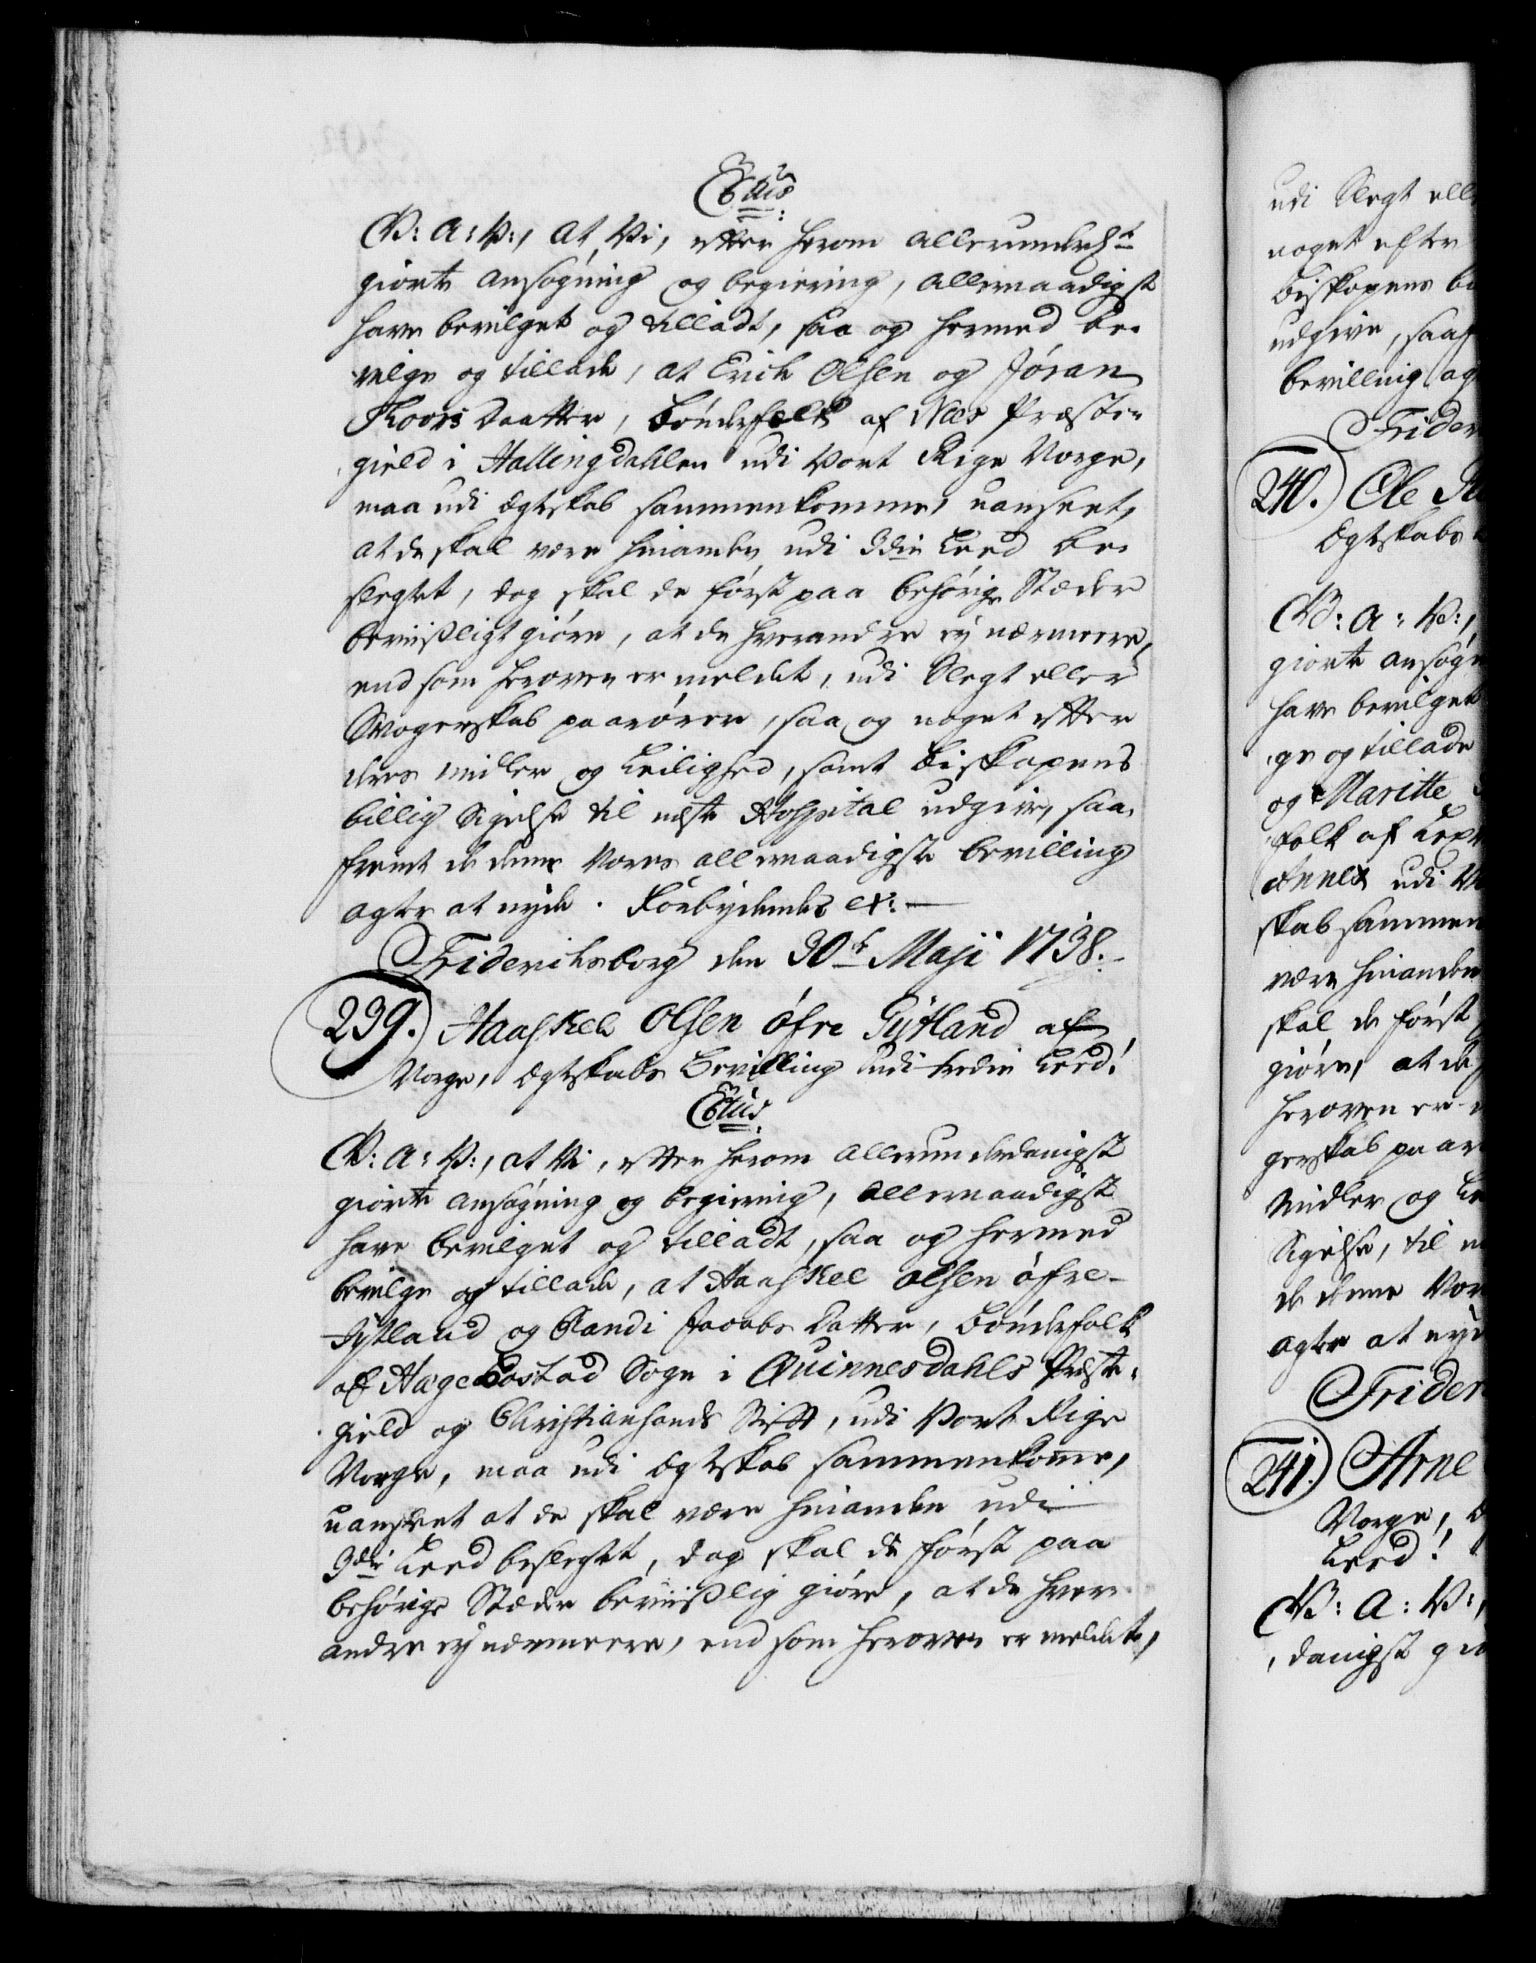 C6tus
V: A: V:, at Vi, efter herom allerunderdst
giorte ansøgning og begiering, allernaadigst
have bevilget og tilladt, saa og hermed be-
vilge og tillade, at Erich Olsen og Jöran
Thoors Daatter, Bönderfolk af Næs Præste-
gield i Hallingdahlen udi Vort Rige Norge,
maa udi Ægteskab sammenkomme, uanseet,
at de skal være hinanden udi 3die Leed be-
slegtet, dog skal de først paa behörige Stæder
beviisligt giöre, at de hverandre ey nærmere,
end som herover er meldet, udi Slegt eller
Svogerskab paarörer, saa og noget efter
deres midler og Leilighed, samt Biskopens
billig Sigelse til neste Hospital udgive, saa-
fremt de denne Vores allernaadigste bevilling
agter at nyde. Forbydendes etc:
Friderichsborg den 30te Maji 1738.
239. Haaskel Olsen öfre Gÿtland af
Norge, Ægteskabs Bevilling udi tredie Leed!
C6tus
V: A: V:, at Vi, efter herom allerunderdanigst
giorte ansögning og begiering, allernaadigst
have bevilget og tilladt, saa og hermed
bevilge og tillade, at Haaskel Olsen öfre-
Gÿtland og Randi Jacobs Datter, Bönderfolk
af Hægebostad Sogn i Quinnesdahls Præste-
gield og Christiansands Stift, udi Vort Rige
Norge, maa udi Ægteskab sammenkomme,
uanseet at de skal være hinanden udi
3die Leed beslegtet, dog skal de først paa
behörige Stæder beviislig giöre, at de hver-
andre ey nærmere, end som herover er meldet,
udi Slegt elle
noget efter
Biskopens bi
udgive, saaf
bevilling ag
Frider
240. Ole
Ægteskabs
V: A: V:,
giorte ansög
have bevilget
ge og tillade
og Maritte
folk af
Annex udi V
skab sammen
være hinanden
skal de först
giöre, at de
herover er
gerskab paarö
Midler og Le
Sigelse, til n
de denne Vor
agter at nyd
Frider
241. Arne
Norge,
Leed!
V: A: V:,
danigst gio